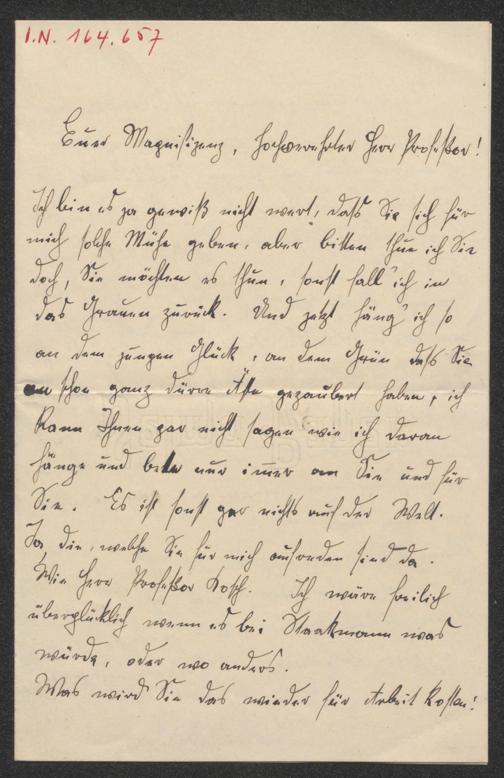 I.N. 164.657
Euer Magnifizenz, hochverehrter Herr Professor!
Ich bin es ja gewiß nicht wert, daß Sie sich für
mich solche Mühe geben, aber bitten thue ich Sie
doch, Sie möchten es thun, sonst fall' ich in
das Grauen zurück. Und jetzt häng' ich so
an dem jungen Glück, an dem Grün dass Sie
an schon ganz dürre Äste gezaubert haben, ich
kann Ihnen gar nicht sagen wie ich daran
hänge und bete nur immer an Sie und für
Sie. Es ist sonst gar nichts auf der Welt.
Ja, die, welche Sie für mich aufreden sind da.
Wie Herr Professor Kosch. Ich wäre freilich
überglücklich wenn es bei Staakmann was
würde, oder wo anders.
Was wird Sie das wieder für Arbeit kosten!